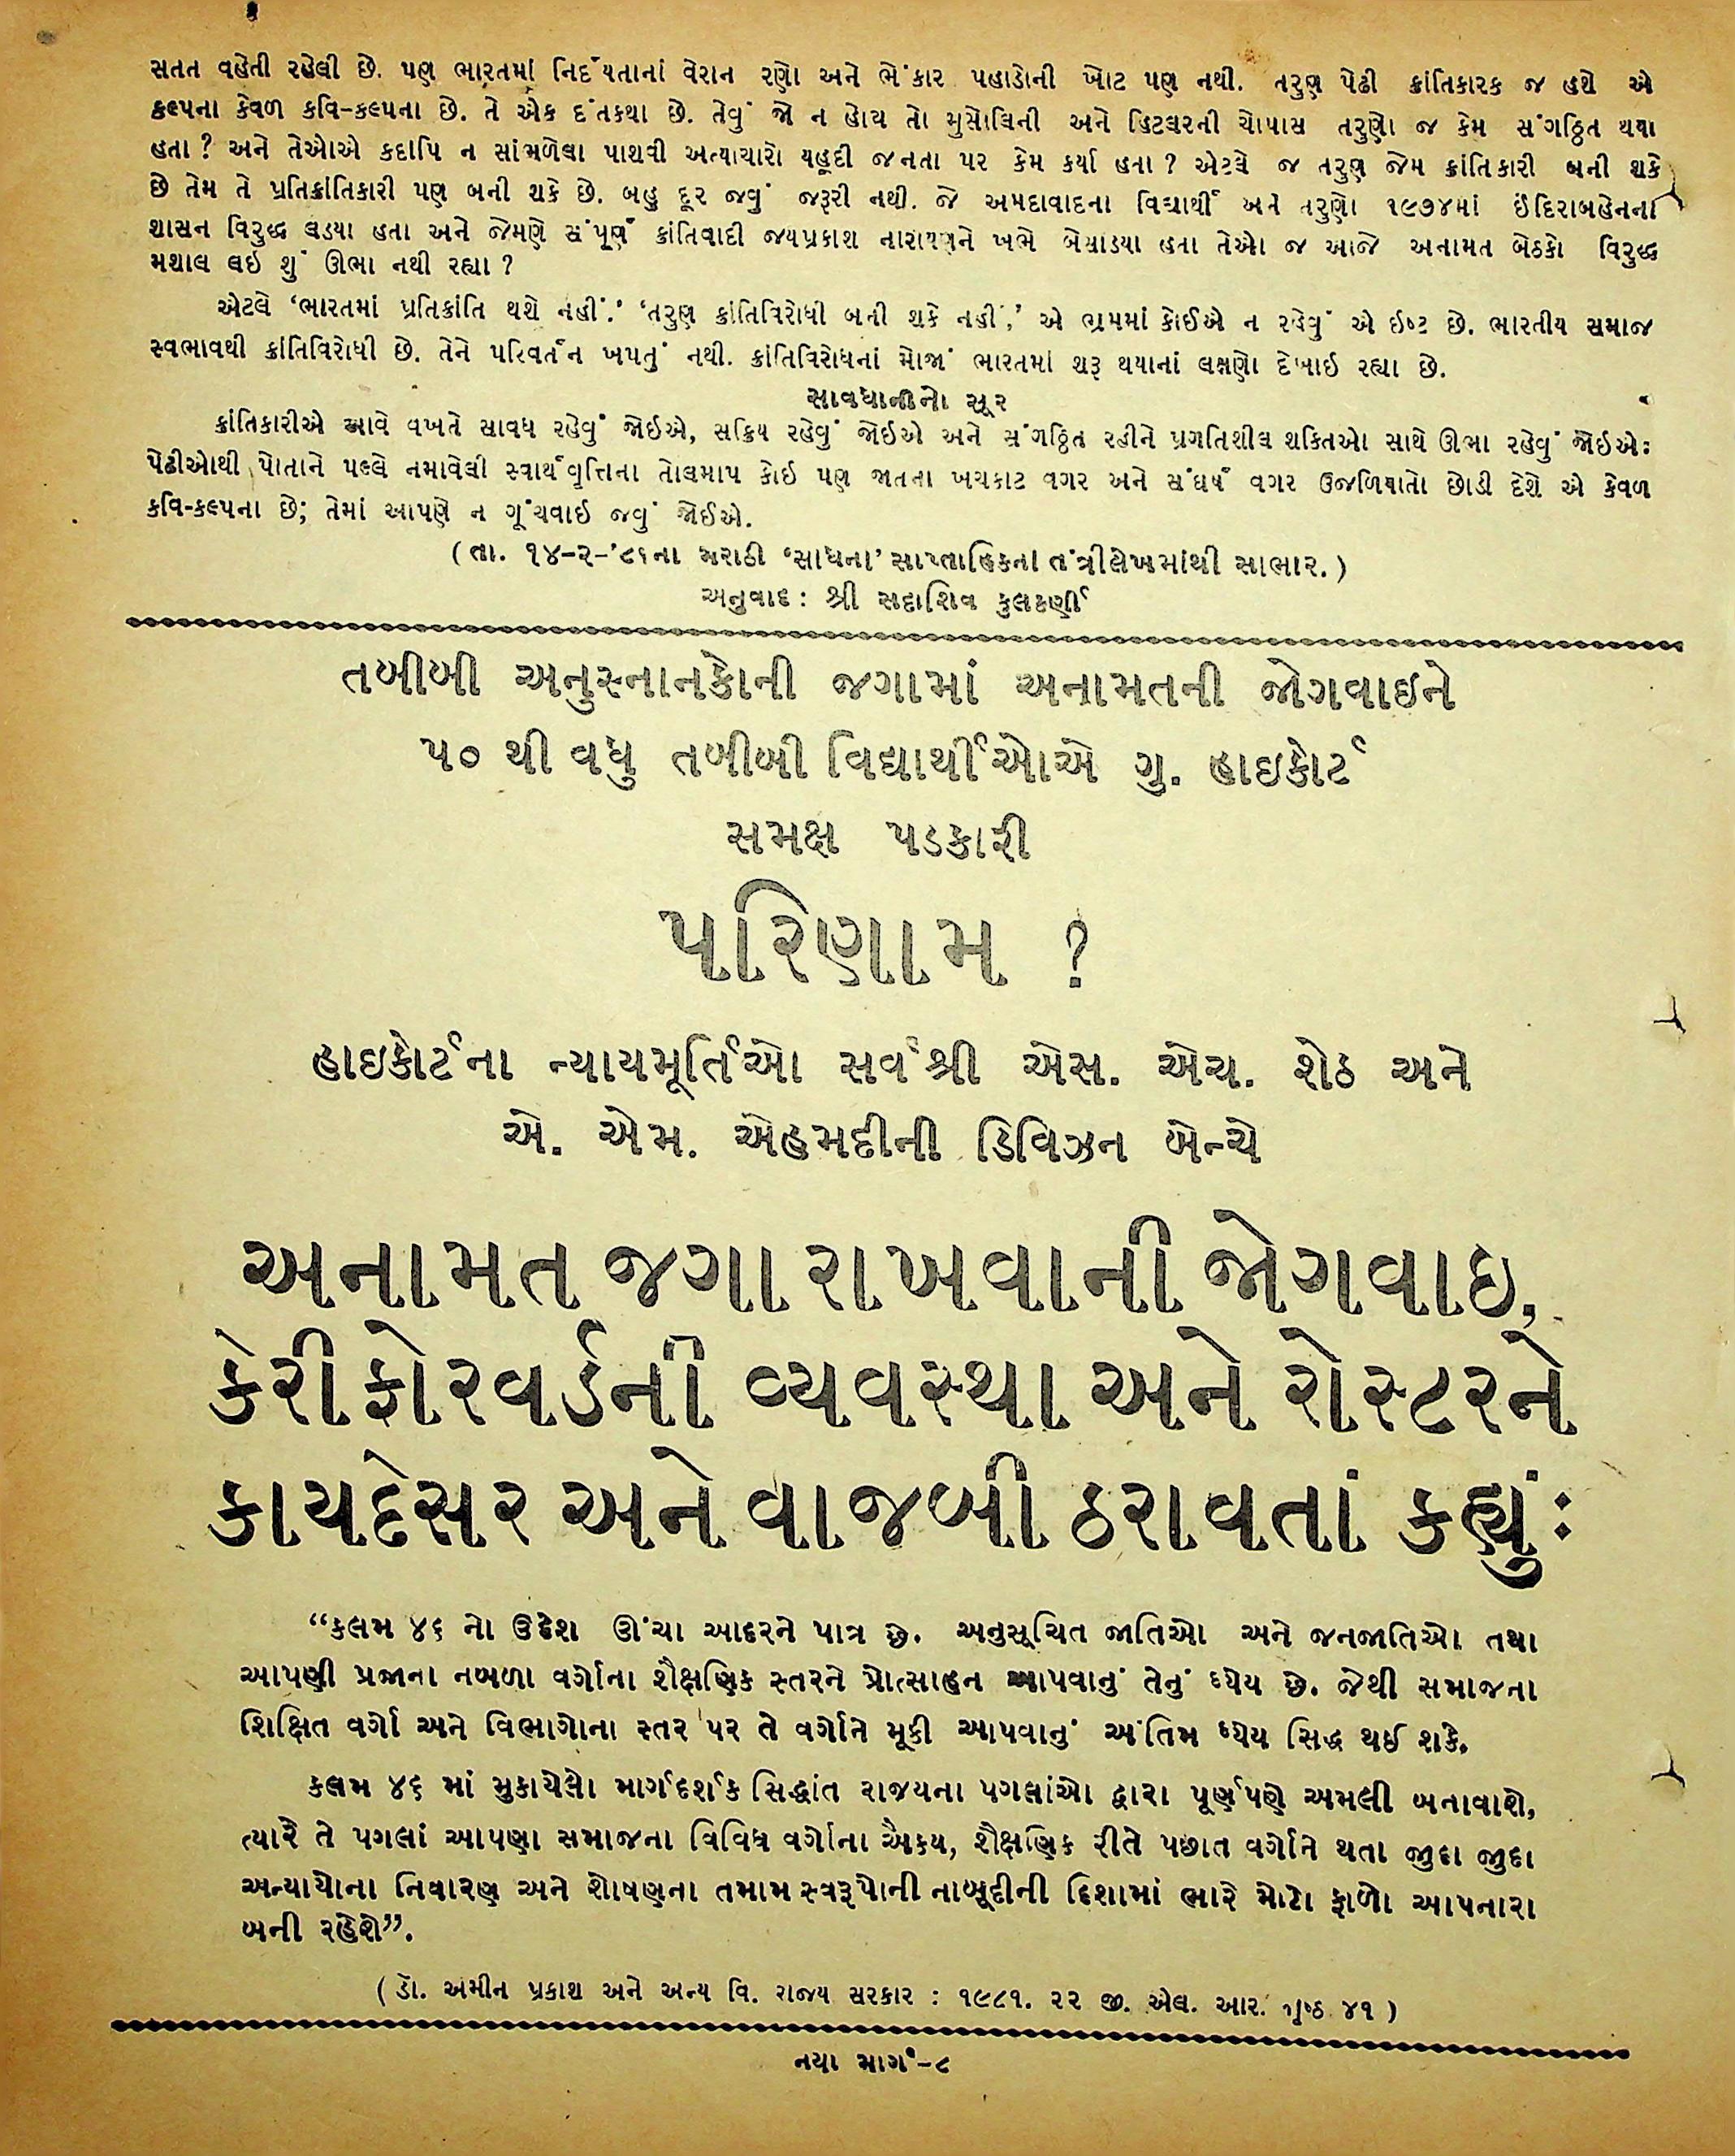 સતત વહેતી રહેલી છે. પણ ભારતમાં નિર્દયતાનાં વેરાન રણો અને ભેંકાર પહાડોની ખોટ પણ નથી. તરુણ પેઢી ક્રાંતિકારક જ હશે એ
કલ્પના કેવળ કવિ-કલ્પના છે. તે એક દંતકથા છે. તેવું જો ન હોય તો મુસોલિની અને હિટલરની ચોપાસ તરુણો જ કેમ સંગઠ્ઠિત થયા
હતા ? અને તેઓએ કદાપિ ન સાંભળેલા પાશવી અત્યાચારો યહૂદી જનતા પર કેમ કર્યા હતા ? એટલે જ તરુણ જેમ ક્રાંતિકારી બની શકે
છે તેમ તે પ્રતિક્રાંતિકારી પણ બની શકે છે. બહુ દૂર જવું જરૂરી નથી. જે અમદાવાદના વિદ્યાર્થી અને તરુણો ૧૯૭૪માં ઇંદિરાબહેનના
શાસન વિરુદ્ધ લડયા હતા અને જેમણે સંપૂર્ણ ક્રાંતિવાદી જયપ્રકાશ નારાયણને ખભે બેસાડયા હતા તેઓ જ આજે અનામત બેઠકો વિરુદ્ધ
મશાલ લઇ શું ઊભા નથી રહ્યા ?
એટલે ‘ભારતમાં પ્રતિકાંતિ થશે નહીં.’ ‘તરુણ ક્રાંતિવિરોધી બની શકે નહીં,’ એ ભ્રમમાં કોઈએ ન રહેવું એ ઇષ્ટ છે. ભારતીય સમાજ
સ્વભાવથી ક્રાંતિવિરોધી છે. તેને પરિવર્તન ખપતું નથી. ક્રાંતિવિરોધનાં મોજાં ભારતમાં શરૂ થયાનાં લક્ષણો દેખાઇ રહ્યા છે.
સાવધાનીનો સૂર
ક્રાંતિકારીએ આવે વખતે સાવધ રહેવું જોઈએ, સક્રિય રહેવું જોઈએ અને સંગઠ્ઠિત રહીને પ્રગતિશીલ શકિતઓ સાથે ઊભા રહેવું જોઈએ:
પેઢીઓથી પોતાને પલ્લે નમાવેલી સ્વાર્થવૃત્તિના તોલમાપ કોઇ પણ જાતના ખચકાટ વગર અને સંઘર્ષ વગર ઉજળિયાતો છોડી દેશે એ કેવળ
કવિ-કલ્પના છે; તેમાં આપણે ન ગૂંચવાઇ જવું જોઈએ.
( તા. ૧૪-૨-’૮૧ના મરાઠી ‘સાધના’ સાપ્તાહિકના તંત્રીલેખમાંથી સાભાર. )
અનુવાદ : શ્રી સદાશિવ કુલકર્ણી
તબીબી અનુસ્નાનકોની જગામાં અનામતની જોગવાઇને
૫૦ થી વધુ તબીબી વિદ્યાર્થીઓએ ગુ. હાઇકોર્ટ
સમક્ષ પડકારી
પરિણામ ?
હાઇકોર્ટના ન્યાયમૂર્તિઓ સર્વશ્રી એસ. એચ. શેઠ અને
એ. એમ. એહમદીની ડિવિઝન બેન્ચે
અનામત જગા રાખવાની જોગવાઇ,
કેરી ફોરવર્ડની વ્યવસ્થા અને રોસ્ટરને
કાયદેસર અને વાજબી ઠરાવતાં કહ્યું :
“કલમ ૪૬ નો ઉદ્દેશ ઊંચા આદરને પાત્ર છે. અનુસૂચિત જાતિઓ અને જનજાતિઓ તથા
આપણી પ્રજાના નબળા વર્ગોના શૈક્ષણિક સ્તરને પ્રોત્સાહન આપવાનું તેનું ધ્યેય છે. જેથી સમાજના
શિક્ષિત વર્ગો અને વિભાગોના સ્તર પર તે વર્ગોને મૂકી આપવાનું અંતિમ ધ્યેય સિદ્ધ થઈ શકે.
કલમ ૪૬ માં મુકાયેલો માર્ગદર્શક સિદ્ધાંત રાજયના પગલાંઓ દ્વારા પૂર્ણપણે અમલી બનાવાશે,
ત્યારે તે પગલાં આપણા સમાજના વિવિધ વર્ગોના ઐકય, શૈક્ષણિક રીતે પછાત વર્ગોને થતા જુદા જુદા
અન્યાયોના નિવારણ અને શોષણના તમામ સ્વરૂપોની નાબૂદીની દિશામાં ભારે મોટો ફાળો આપનારા
બની રહેશે”.
( ડૉ. અમીન પ્રકાશ અને અન્ય વિ. રાજય સરકાર : ૧૯૮૧. ૨૨ જી. એલ. આર. પૃષ્ઠ ૪૧ )
નયા માર્ગ-૮